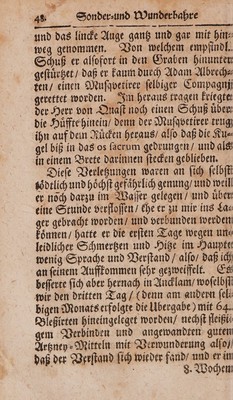 48. Sonder-und Wunderbahre
und das lincke Auge gantz und gar mit hin-
weg genommen. Von welchem empfindl.
Schuß er alsofort in den Graben hinunter
gestürtzet/ daß er kaum durch Adam Albrech-
ten/ einen Musqvetirer selbiger Compagnj
gerettet worden. Im heraus tragen kriegte
der Herr von Qvast noch einen Schuß über
die Hüffte hinein/ denn der Musqvetirer trug
ihn auf dem Rücken heraus/ also daß die Ku-
gel biß in das os sacrum gedrungen/ und als
in einem Brete darinnen stecken geblieben.
Diese Verletzungen waren an sich selbst
tödtlich und höchst gefährlich genung/ und weil
er noch darzu im Wasser gelegen/ und über
eine Stunde verflossen/ ehe er zu mir ins La-
ger gebracht worden/ und verbunden werden
können/ hatte er die ersten Tage wegen un-
leidlicher Schmertzen und Hitze im Haupte
wenig Sprache und Verstand/ also/ daß ich
an seinem Auffkommen sehr gezweiffelt. Es
besserte sich aber hernach in Ancklam/ woselbst
wir den dritten Tag/ (denn am andern sel-
bigen Monats erfolgte die Ubergabe) mit 64.
Bleßirten hineingeleget worden/ nechst fleißi-
gem Verbinden und angewandten guten
Artzney-Mitteln mit Verwunderung also/
daß der Verstand sich wieder fand/ und er im
8. Wochen